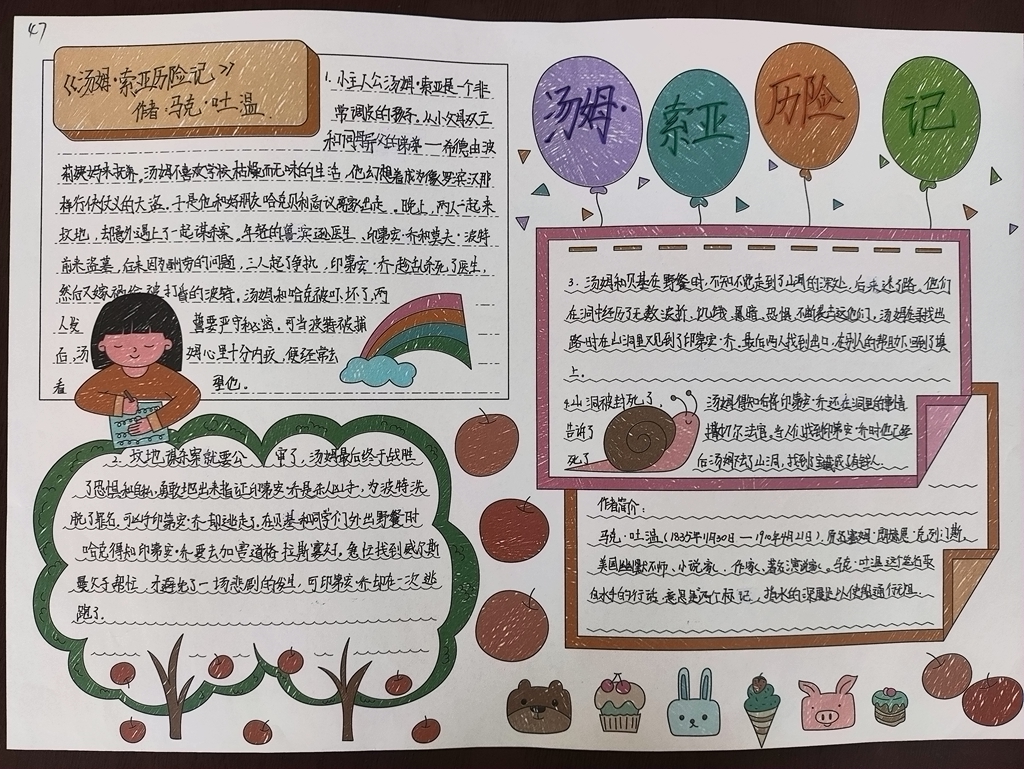 47
《汤姆·索亚历险记》
作者:马克·吐温
1. 小主人公汤姆·索亚是一个非
常调皮的孩子。从小父母双亡
和同母异父的弟弟——希德由波
莉姨妈来抚养。汤姆不喜欢学校枯燥而无味的生活,他幻想着成为像罗宾汉那
样行侠仗义的大盗。于是他和好朋友哈克贝利商议离家出走。晚上,两人一起来
坟地,却意外遇上了一起谋杀案。年轻的鲁滨逊医生、印第安·乔和莫夫·波特
前来盗墓,后来因为酬劳的问题,三人起了争执,印第安·乔趁乱杀死了医生,
然后又嫁祸给被打昏的波特。汤姆和哈克被吓坏了,两
人发誓要严守秘密,可当波特被捕
后,汤姆心里十分内疚,便经常去
看望他。
2. 坟地谋杀案就要公审了,汤姆最后终于战胜
了恐惧和自私,勇敢地出来指证印第安·乔是杀人凶手,为波特洗
脱了罪名,可凶手印第安·乔却逃走了。在贝基和同学们外出野餐时
哈克得知印第安·乔要去加害道格拉斯寡妇,急忙找到威尔斯
曼父子帮忙,才避免了一场悲剧的发生,可印第安·乔却在一次逃
跑了。
汤姆·
索亚
历险
记
3. 汤姆和贝基在野餐时,不知不觉走到了山洞的深处,后来迷了路,他们
在洞中经历了无数波折,饥饿、黑暗、恐惧不断袭击这他们,汤姆在寻找出
路时在山洞里又见到了印第安·乔。最后两人找到出口,在别人的帮助下,回到了镇
上。
4.山洞被封死了,汤姆得知后将印第安·乔还在洞里的事情
告诉了撒切尔法官。当人们找到印第安·乔时他已经
死了
作者简介:
马克·吐温(1835年11月30日——1910年4月21日),原名塞姆·朗赫恩·克列门斯
美国幽默大师、小说家、作家、著名演说家。马克·吐温这个笔名取
自水手的行话,意思是两个标记,指水的深度足以使船通行无阻。